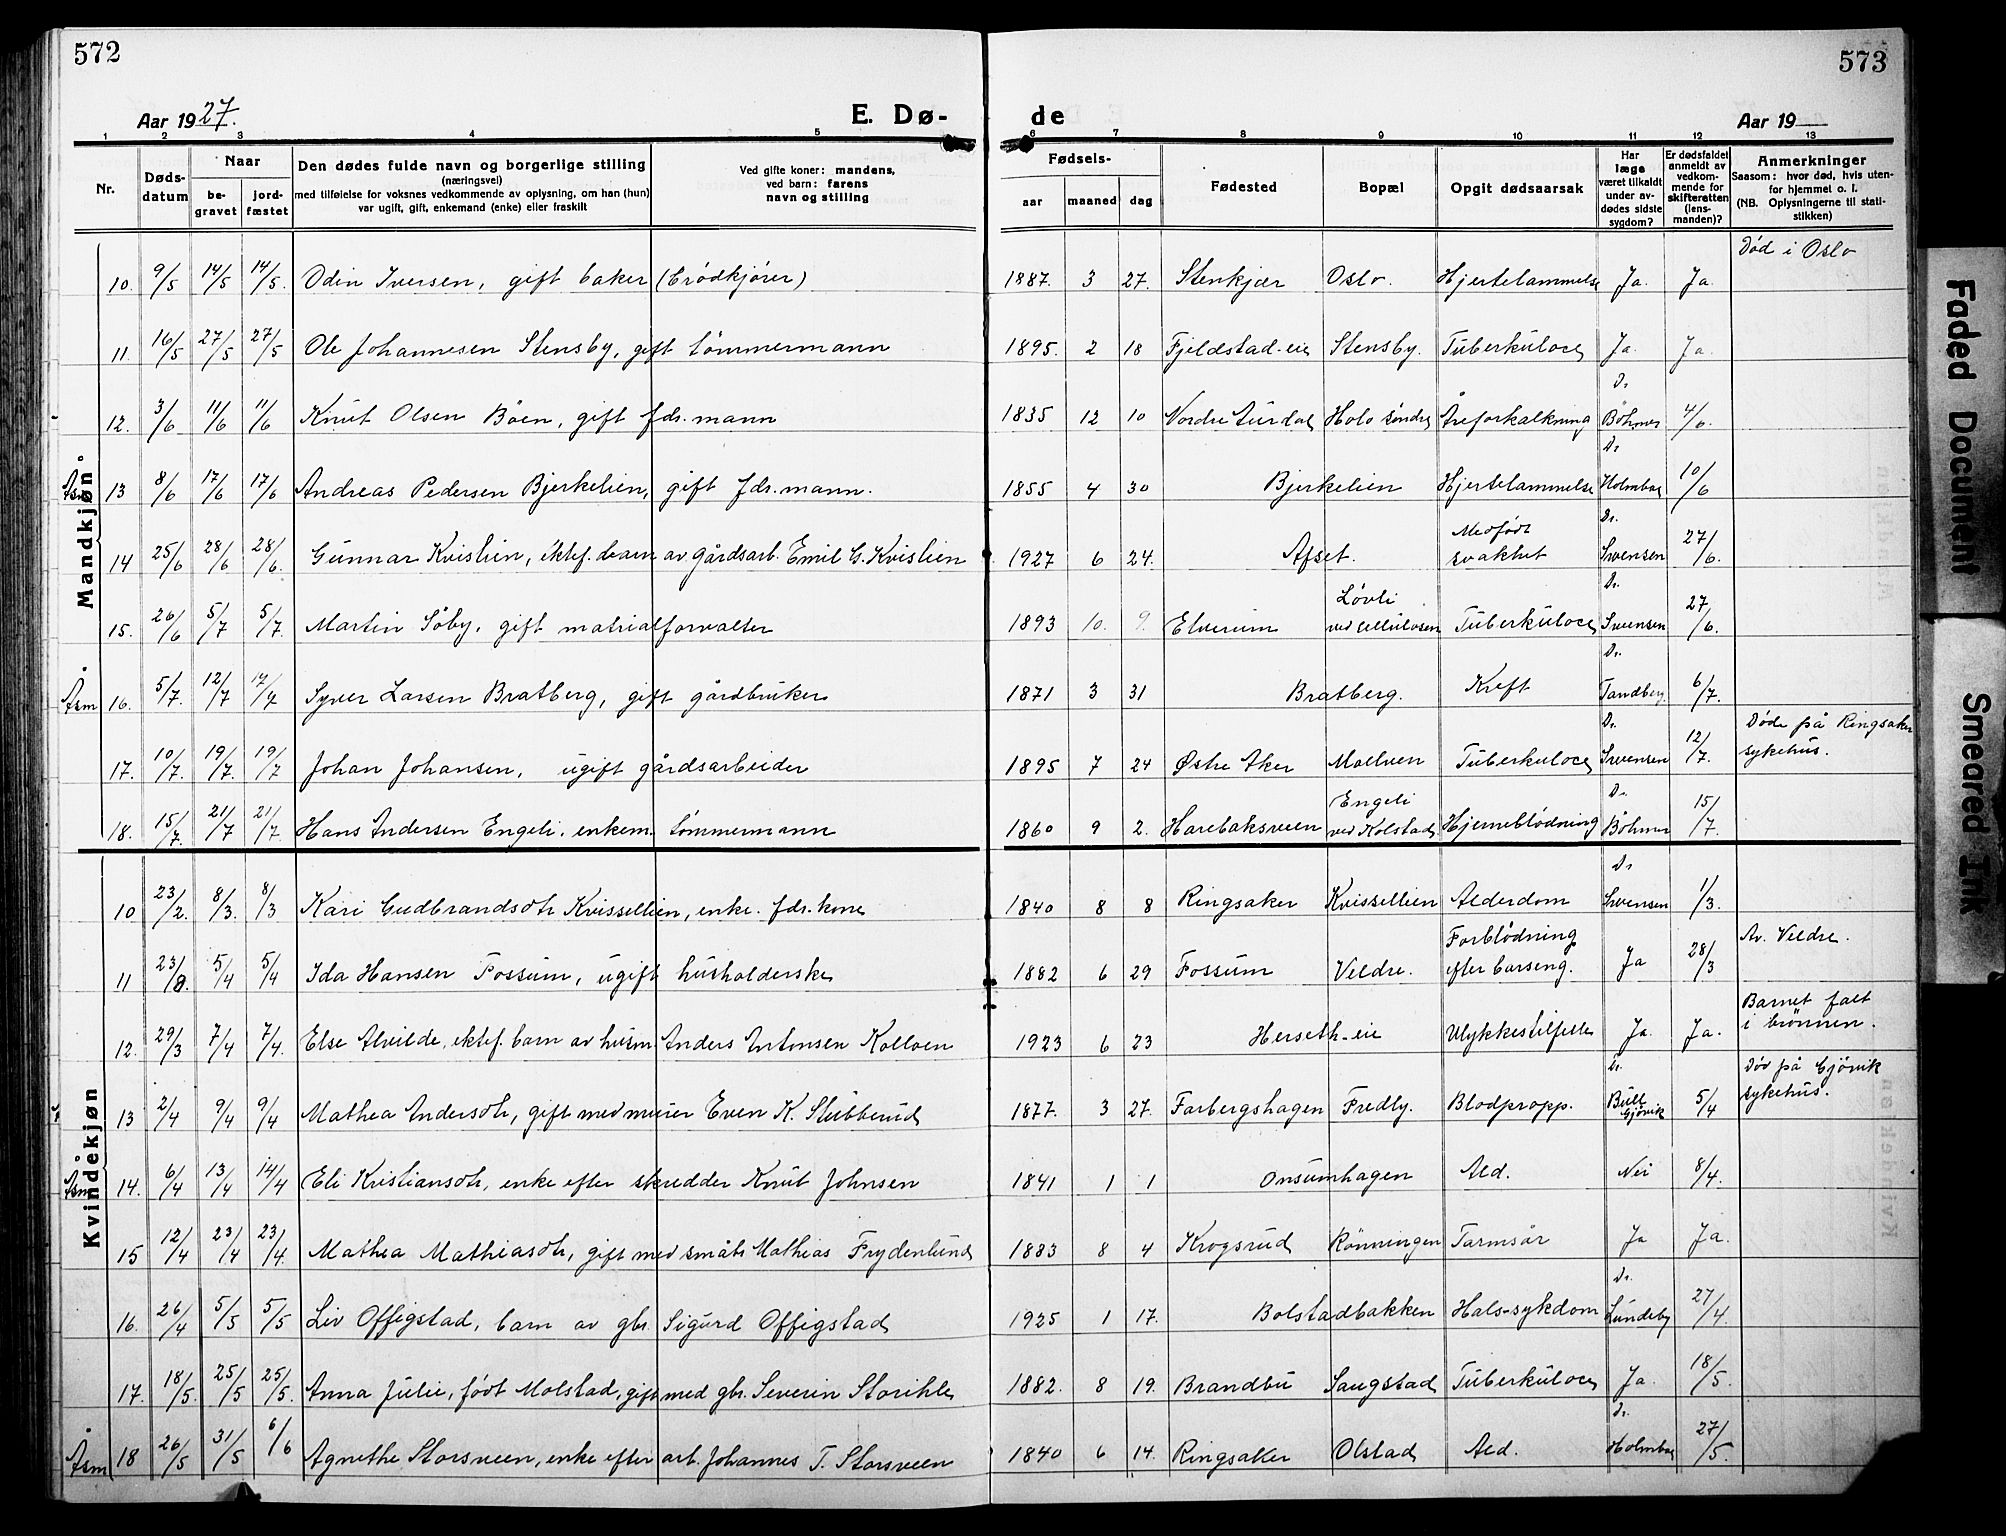 572
573
Aar 1927.
E. Dø-
de
Aar 19
1 2 3 4 5 6 7 8 9 10 11 12 13
Nr.
Døds-
datum
Naar
be-
gravet
jord-
fæstet
Den dødes fulde navn og borgerlige stilling
(næringsvei)
med tilføielse for voksnes vedkommende av oplysning, om han (hun)
var ugift, gift, enkemand (enke) eller fraskilt
Ved gifte koner: mandens,
ved barn: farens
navn og stilling
Fødsels-
aar maaned dag
Fødested
Bopæl
Opgit dødsaarsak
Har
læge
været tilkaldt
under av-
dødes sidste
sygdom?
Er dødsfaldet
anmeldt av
vedkom-
mende for
skifteretten
(lens-
manden)?
Anmerkninger
Saasom: hvor død, hvis uten-
for hjemmet o. l.
(NB. Oplysningerne til stati-
stikken)
Mandkjøn
10. 9/5 14/5 14/5. Odin Iversen, gift baker (brödkjörer) 1887. 3 27. Stenkjær Oslo. Hjertelammelse Ja. Ja. Död i Oslo
11. 16/5 27/5 27/5 Ole Johannesen Stensby, gift tömmermann 1895. 2 18 Fjeldstad-eie Stensby. Tuberkulose Ja. Ja.
12. 3/6 11/6 11/6 Knut Olsen Böen, gift fdr.mann 1835 12 10 Nordre Aurdal Holo söndre Åreforkalkning Dr. Böhmer 4/6.
Åsm 13 8/6 17/6 17/6 Andreas Pedersen Bjerkelien, gift fdr.mann. 1855 4 30 Bjerkelien Hjertelammelse Dr. Holmboe 10/6
14 25/6 28/6 28/6. Gunnar Kvislien, ektef. barn av gårdsarb. Emil G. Kvislien 1927 6 24. Afset. Medfödt svakhet Dr. Svensen 27/6.
15. 26/6 5/7 5/7. Martin Söby, gift matrialforvalter 1893 10. 9. Elverum Lövli ved cellulosen Tuberkulose Dr. Svensen 27/6.
Åsm 16. 5/7. 12/7 14/7 Syver Larsen Bratberg, gift gårdbruker 1871 3 31 Bratberg. Kreft Dr. Tandberg. 6/7.
17. 10/7. 19/7. 19/7 Johan Johansen, ugift gårdsarbeider 1895 7 24 Østre Aker Moelven Tuberkulose Dr. Svensen 12/7. Döde på Ringsaker sykehus.
18. 15/7. 21/7 21/7 Hans Andersen Engeli, enkem. tömmermann 1860 9 2. Harebaksveen Engeli ved Kolstad Hjerneblödning Dr. Böhmer 15/7.
Kvindekjøn
10 23/2. 8/3. 8/3 Kari Gudbrandsdtr Kvissellien, enke. fdr.kone 1840 8 8 Ringsaker Kvissellien Alderdom Dr. Svensen 1/3.
11 23/8. 5/4 5/4 Ida Hansen Fossum, ugift husholderske 1882 6 29 Fossum Veldre. Forblödning efter barseng. Ja 28/3 Av. Veldre.
12. 29/3 7/4 7/4. Else Alvilde, ektef. barn av husm. Anders Antonsen Kolloen 1923 6 23 Herseth-eie Ulykkestilfelle Ja. Ja. Barnet falt i brönnen.
13 2/4 9/4 9/4 Mathea Andersdtr, gift med murer Even K. Stubberud 1877. 3 27. Farbergshagen Fredly. Blodpropp. Dr. Bull Gjövik 5/4 Död på Gjövik sykehus.
Åsm 14. 6/4 13/4 14/4 Eli Kristiansdtr, enke efter skredder Knut Johnsen 1841 1 1 Onsumhagen Ald. Nei 8/4.
15 12/4 23/4 23/4. Mathea Mathiasdtr, gift med småbr Mathias Frydenlund 1883 8 4 Krogsrud Rönningen Tarmsår Ja Ja.
16. 26/4 5/5 5/5 Liv Offigstad, barn av gbr. Sigurd Offigstad 1925 1 17. Bolstadbakken Hals-sykdom Dr. Lundeby 27/4.
17. 18/5. 25/5 25/5. Anna Julie, födt Molstad, gift med gbr. Severin Storihle 1882. 8 19. Brandbu Saugstad Tuberkulose Ja. 18/5.
Åsm 18 26/5 31/5 6/6 Agnethe Storsveen, enke efter arb. Johannes T. Storsveen 1840 6 14. Ringsaker Olstad Ald. Dr. Holmboe 27/5.
Faded Document
Smeared Ink